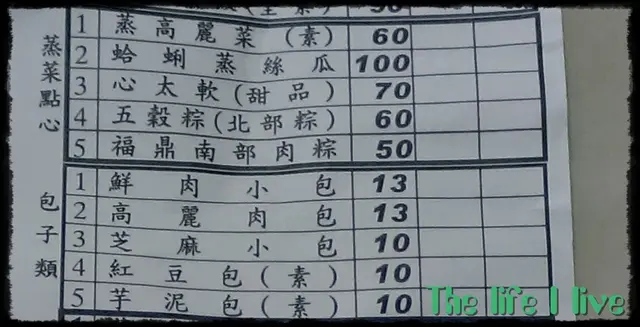 蒸菜點心
1 蒸高麗菜(素) 60
2 蛤蜊蒸絲瓜 100
3 心太軟(甜品) 70
4 五穀粽(北部粽) 60
5 福鼎南部肉粽 50
包子類
1 鮮肉小包 13
2 高麗肉包 13
3 芝麻小包 10
4 紅豆包(素) 10
5 芋泥包(素) 10
The life I live